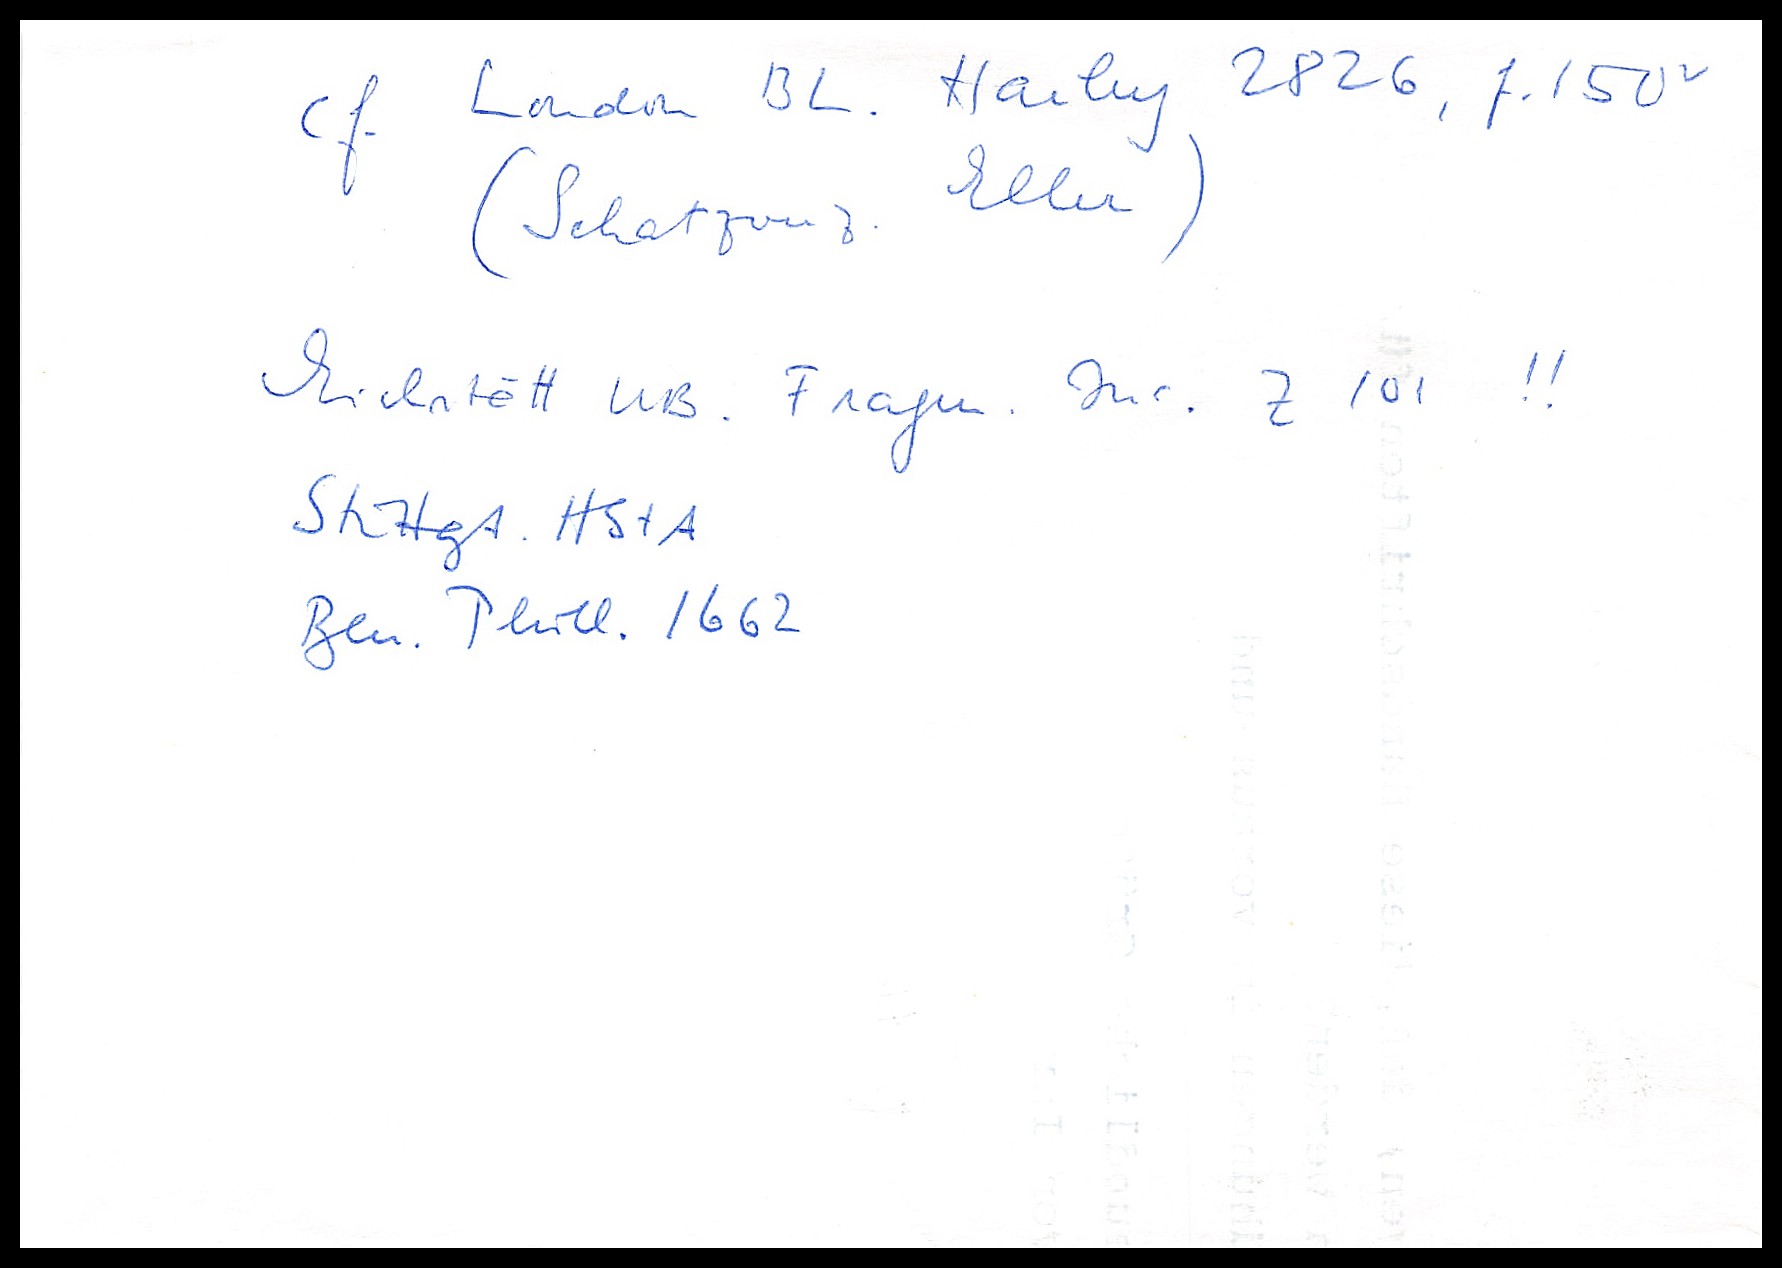 cf. London BL. Harley 2826, f. 150v
(Schatzverz. Eller)
Eichstätt UB. Fragm. Inc. Z 101 !!
Stuttgt. HStA
Bln. Phill. 1662